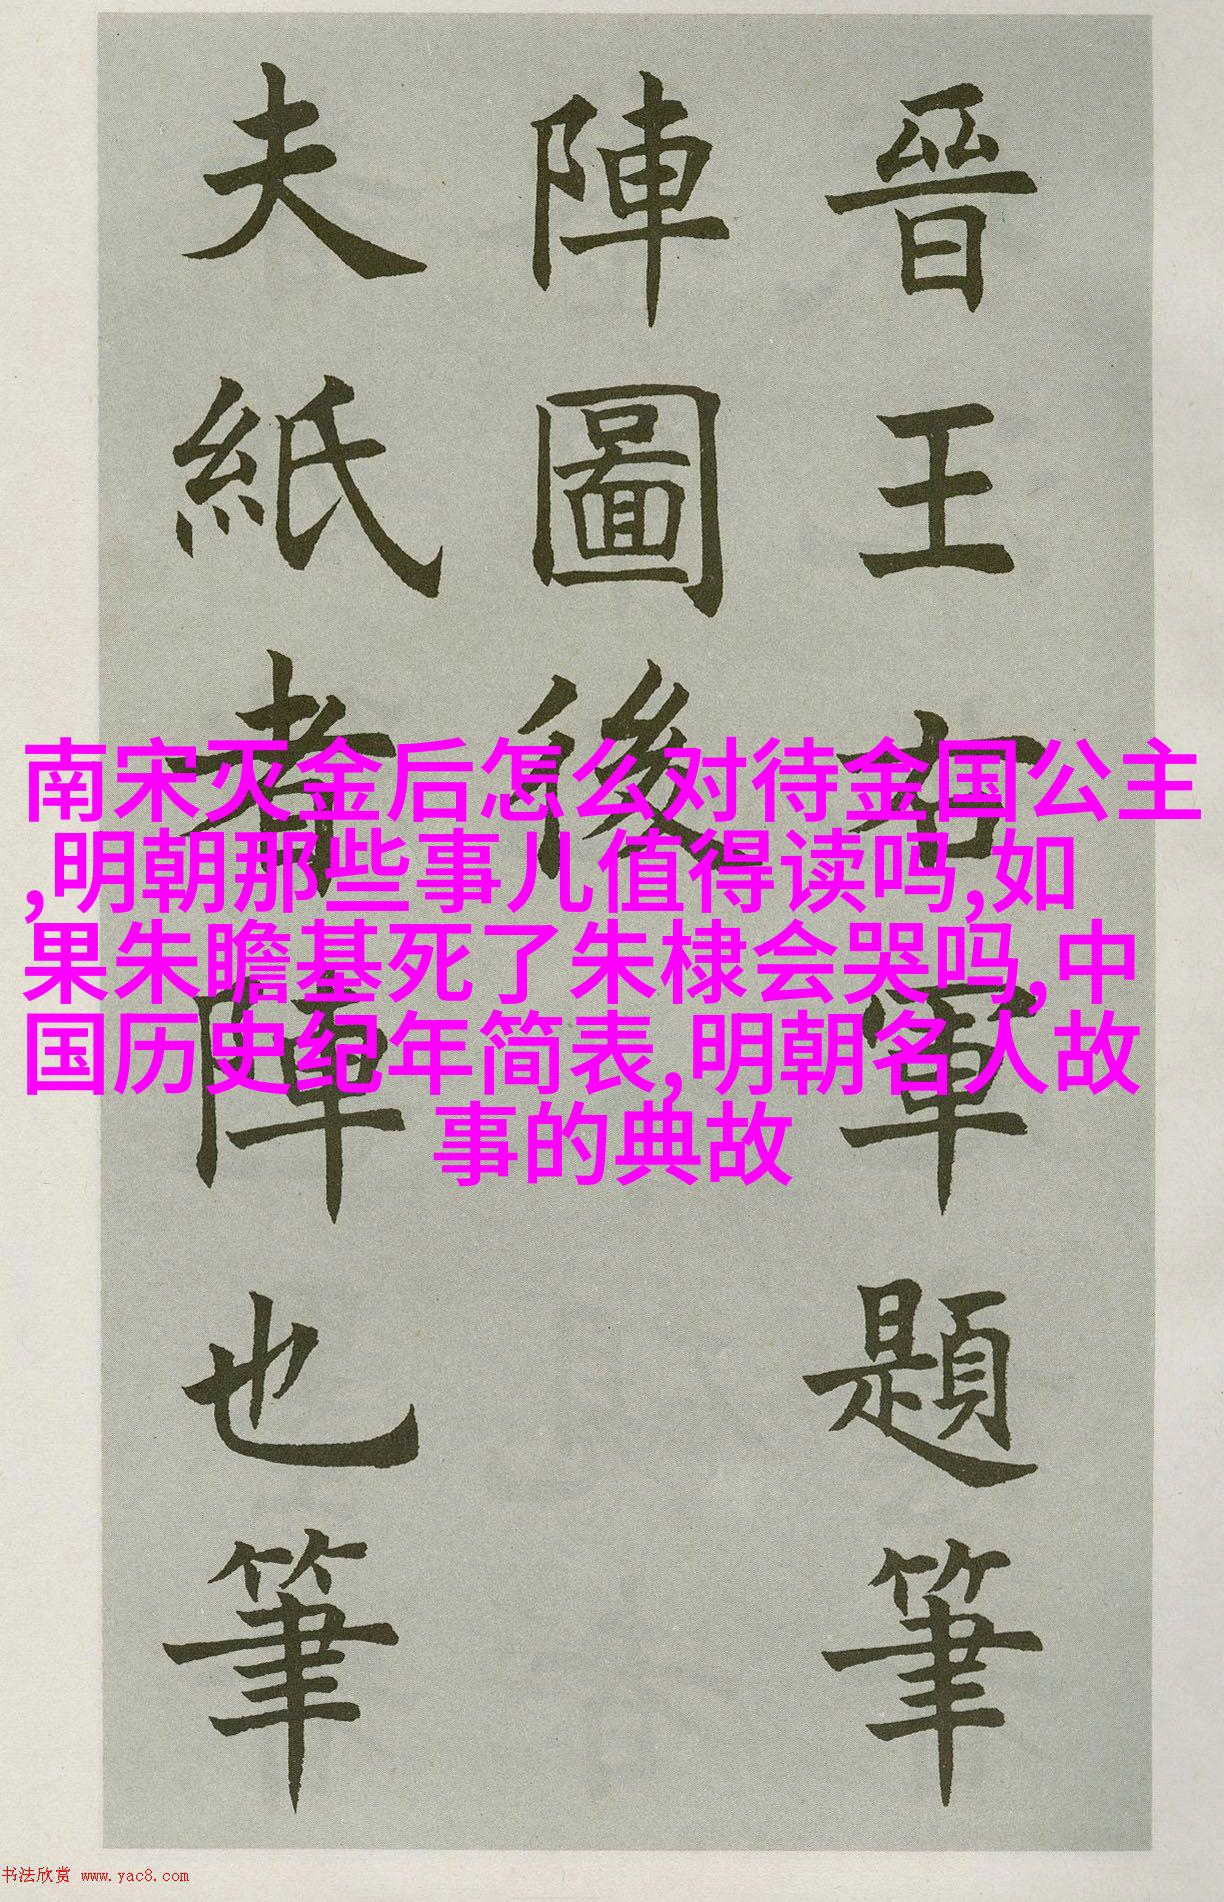 晉王右軍題筆
陣圖後
夫紙者陣也筆
南宋灭金后怎么对待金国公主
,明朝那些事儿值得读吗,如
果朱瞻基死了朱棣会哭吗,中
国历史纪年简表,明朝名人故
事的典故
书法欣赏 www.yac8.com